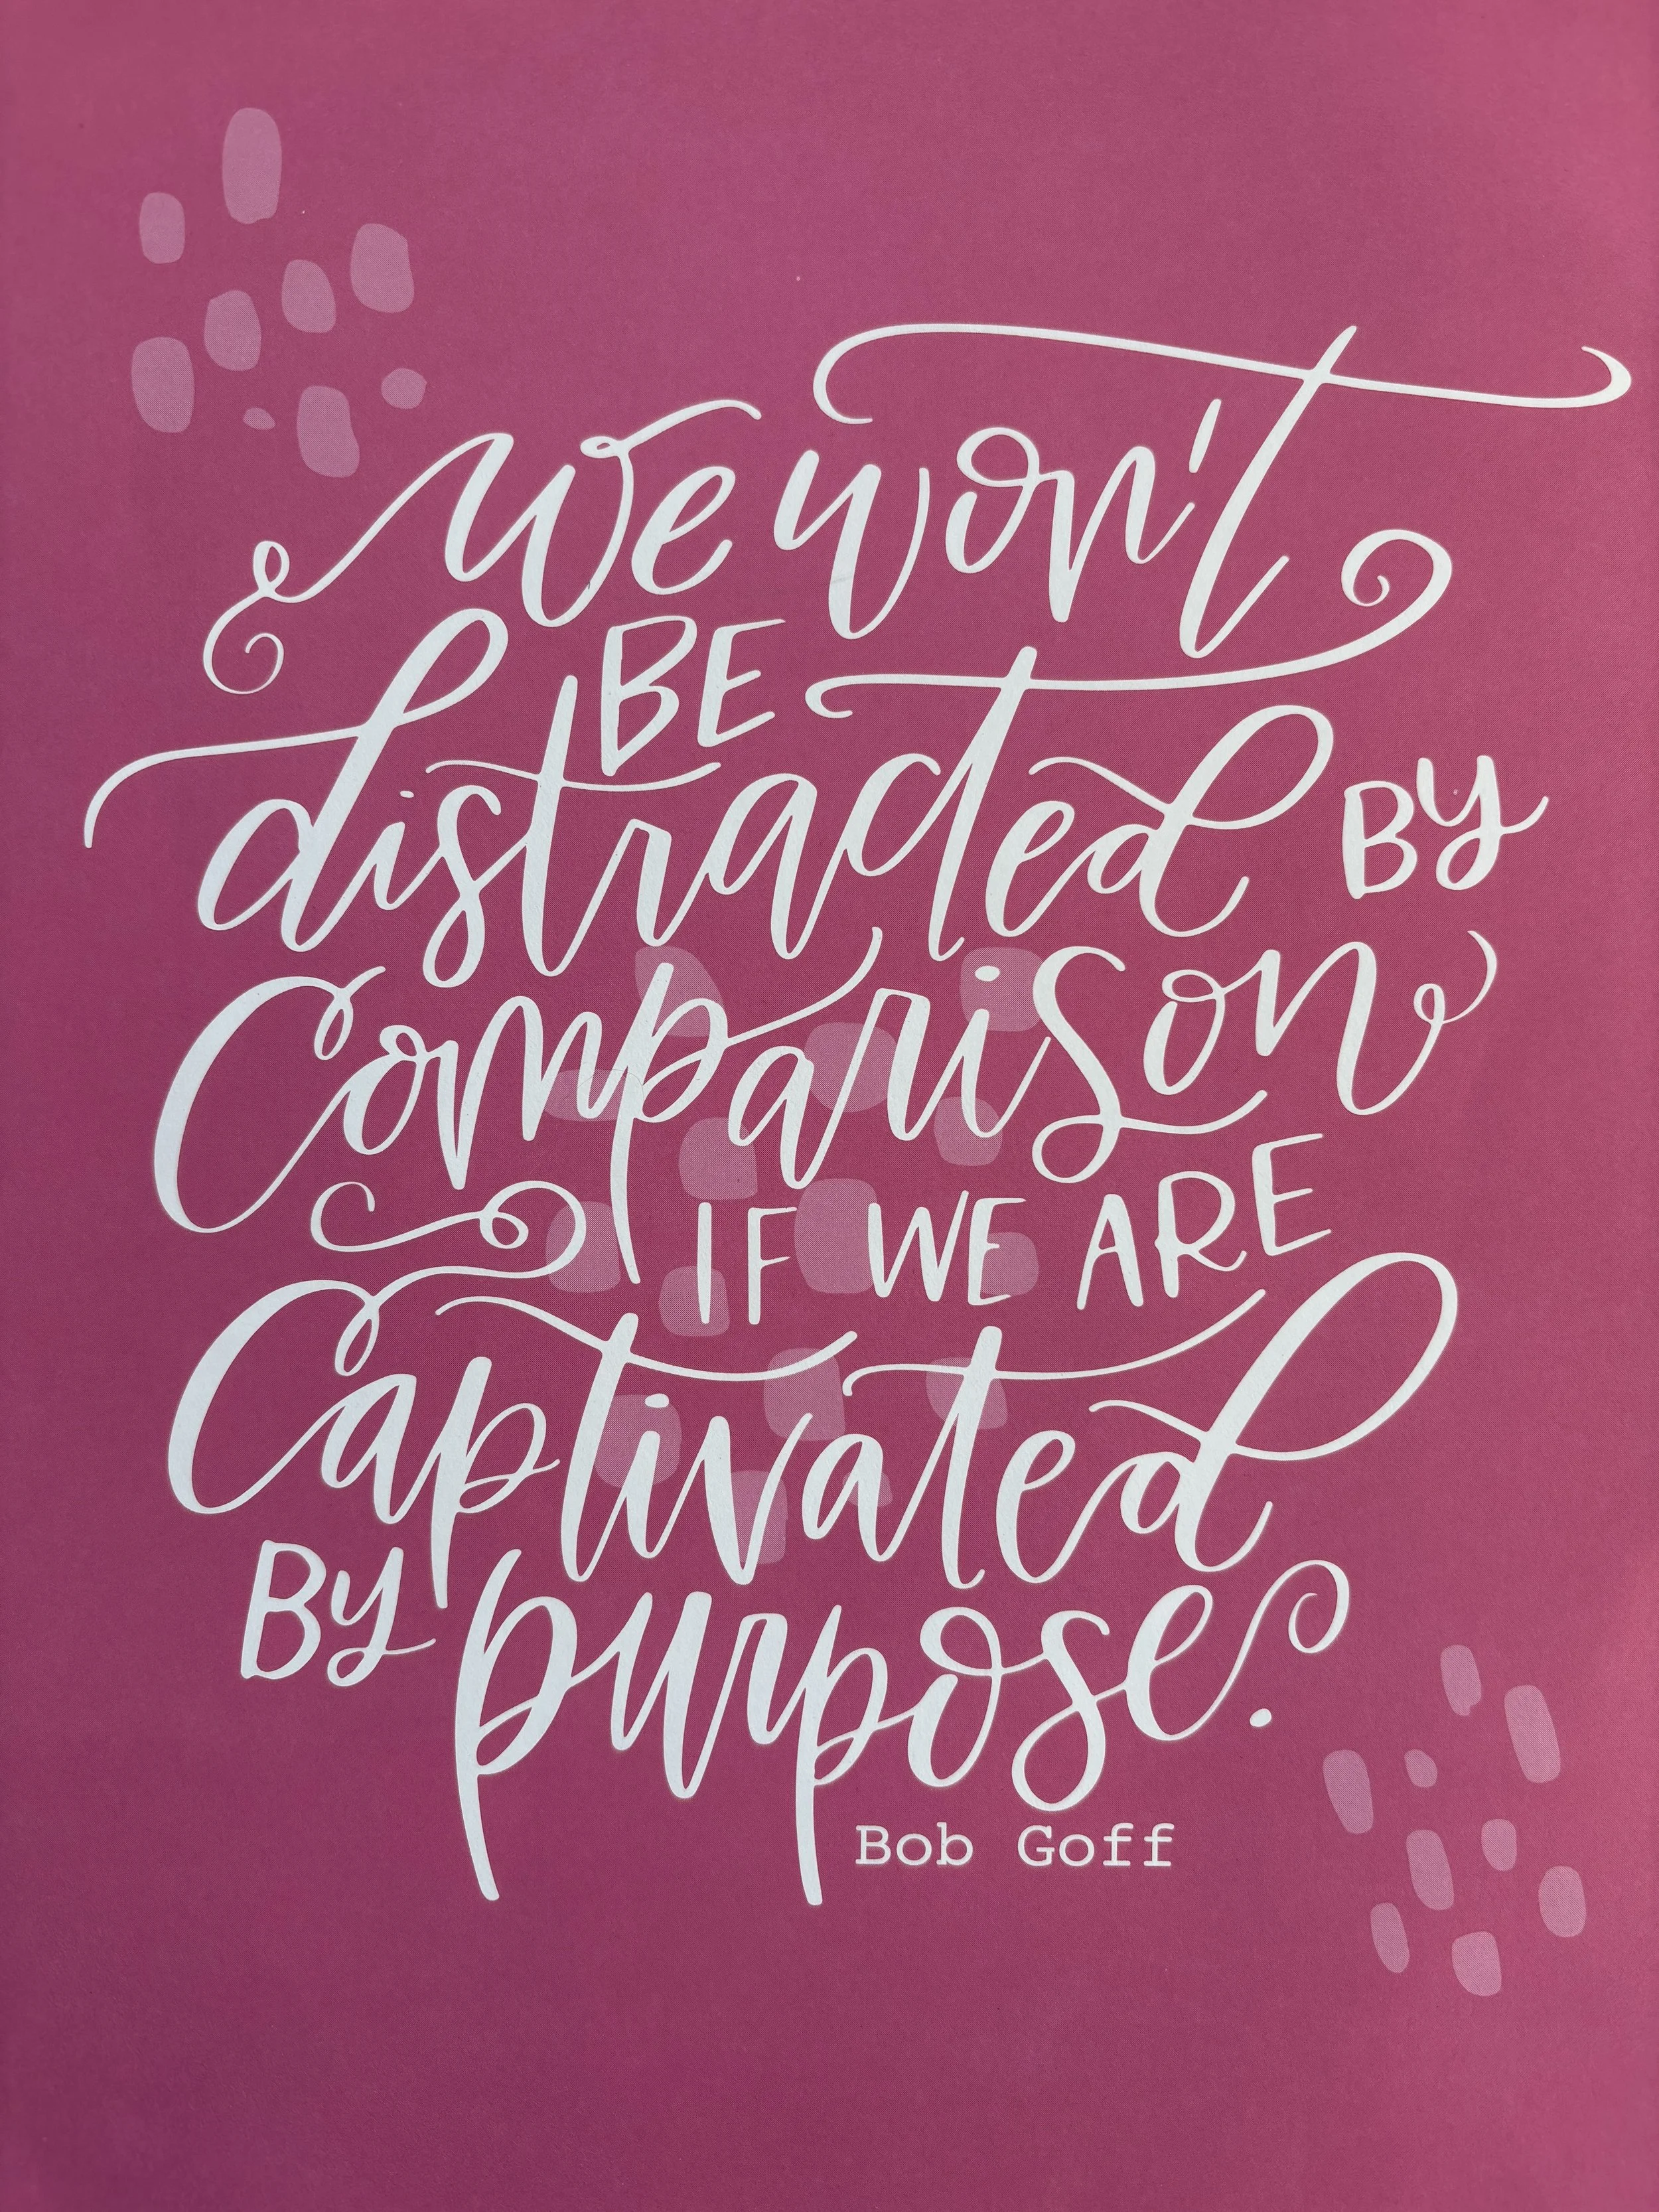 we won't
BE
distracted By
Comparison
IF WE ARE
Captivated
By purpose.
Bob Goff